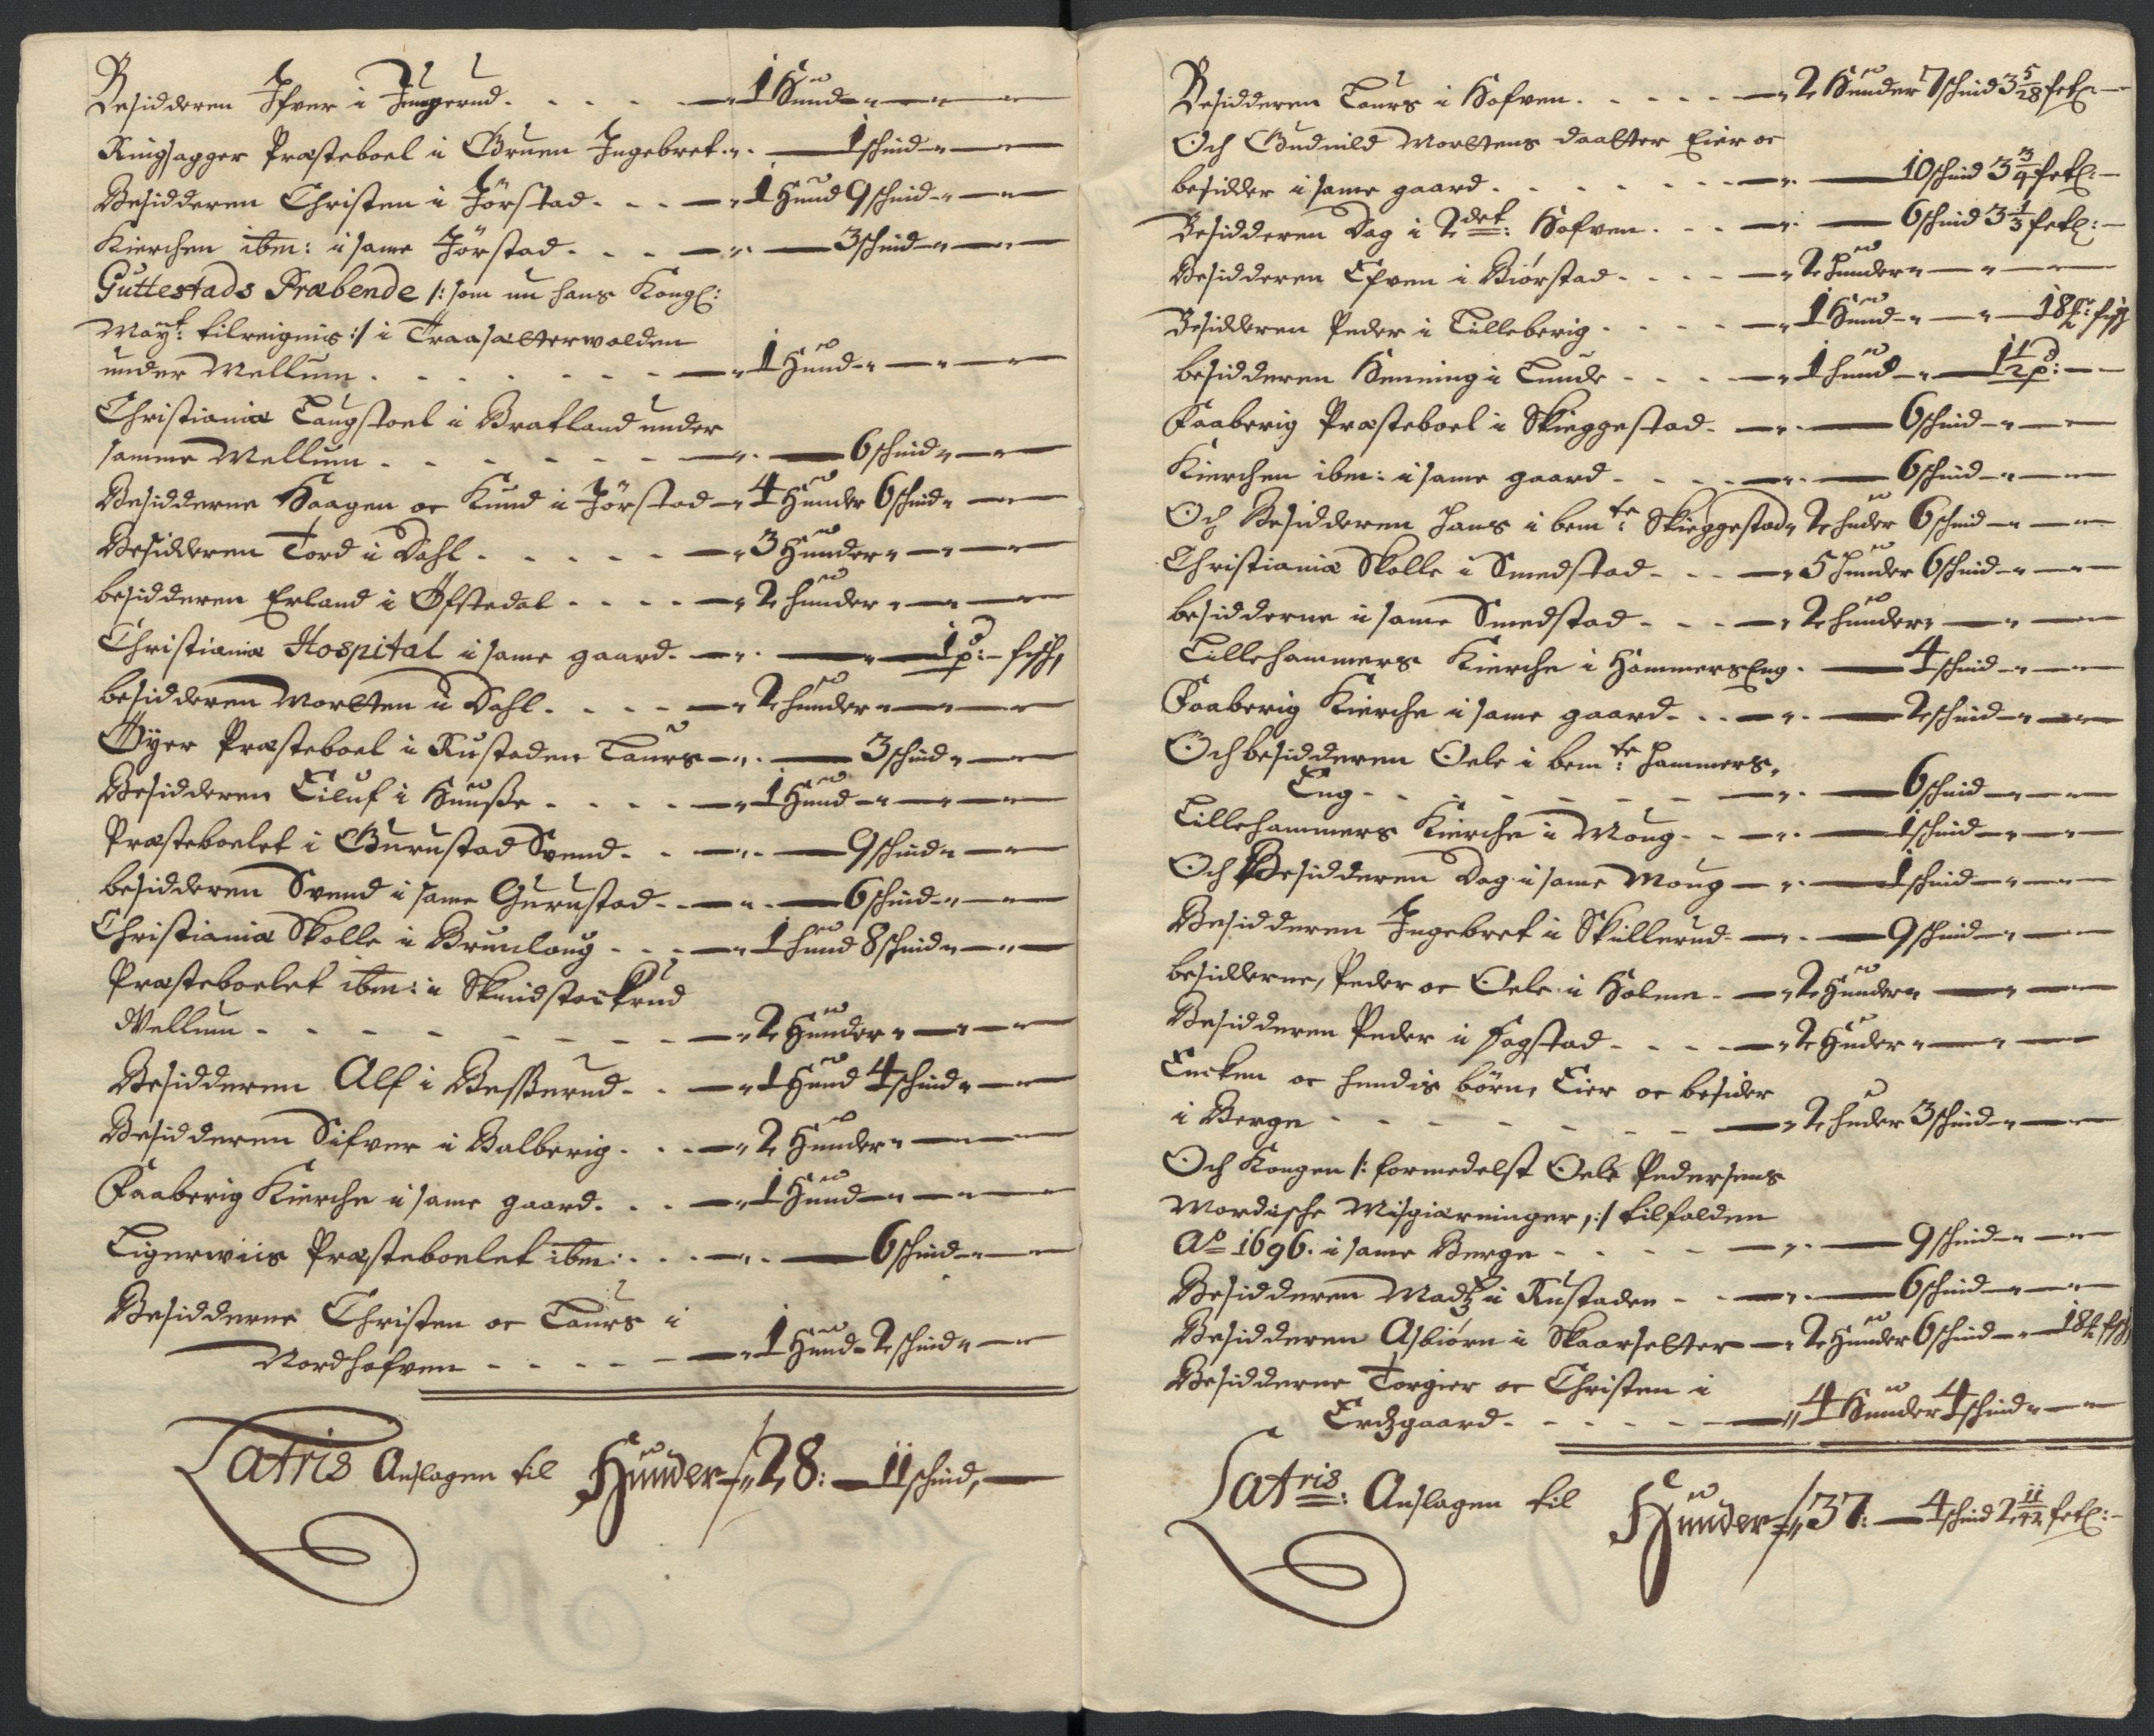 Besidderen Ifver i Jungerud - - - - 1 Hund
Ringsagger Præsteboel i Gruen Ingebret - 1 schind
Besidderen Christen i Jörstad - - - 1 Hund 9 schind
Kierchen ibm: i same Jörstad - - - 3 schind
Guttestads Præbende /: som nu hans Kongl:
Mayt: tilreignis :/ i Traasætterwolden
under Mellum - - - - - - 1 Hund
Christiania Laugstoel i Bratland under
samme Mellum - - - - - - 6 schind
Besidderne Haagen oc Knud i Jörstad - 4 Hunder 6 schind
Besidderen Tord i Dahl - - - - - 3 Hunder
besidderen Erland i Öfstedal - - - - 2 hunder
Christiania Hospital i same gaard - 1 p: fisch
besidderen Morten i Dahl - - - - 2 hunder
Öyer Præsteboel i Rustaden Laurs - 3 schind
Besidderen Eiluf i Huuße - - - - 1 Hund
Præsteboelet i Gurustad Svend - - 9 schind
besidderen Svend i same Gurustad - - 6 schind
Christiania Skolle i Brunloug - - - 1 hund 8 schind
Præsteboelet ibm: i
Mellum - - - - - - - - 2 Hunder
Besidderen Alf i Beßerud - - 1 Hund 4 schind
Besidderen Sifver i Balberig - - - 2 Hunder
Faaberig Kierche i same gaard - - - 1 Hund
Ligerwiis Præsteboelet ibm: - - - 6 schind
Besidderne Christen oc Laurs i
Nordhofven - - - - - 1 Hund 2 schind
Latris Anslagen til Hunder 28: 11 schind,
Besidderen Laurs i Hofven - - - - 2 Hunder 7 schind 3 5/28 fetl:
Och Gudnild Mortens daatter Eier oc
besidder i same gaard - - - - - - 10 schind 3 3/4 fetl:
Besidderen Dag i 2det: Hofven - - - 6 schind 3 1/3 fetl:
Besidderen Efven i Biörstad - - - - 2 hunder
Besidderen Peder i Lilleberig - - - - 1 Hund 18 fisch
besidderen Henning i Lunde - - - - 1 hund 1 1/2 p:
Faaberig Præsteboel i Skieggestad - 6 schind
Kierchen ibm: i same gaard - - - - 6 schind
Och Besidderen Hans i bemte: Skieggestad 2 huder 6 schind
Christiania Skolle i Smedstad - - - 5 hunder 6 schind
besidderne i same Smedstad - - - 2 hunder
Lillehammers Kierche i HammersEng - 4 schind
Faaberig Kierche i same gaard - - - 2 schind
Och besidderen Oele i bemte: Hammers,
Eng - - - - - - - 6 schind
Lillehammers Kierche i Moug - - - 1 schind
Och Besidderen Dag i same Moug - 1 schind
Besidderen Ingebret i Skullerud - 9 schind
besidderne, Peder oc Oele i Holmen - 2 Hunder
Besidderen Peder i Fogstad - - - - 2 Huder
Encken oc hendis börn, Eier oc besider
i Berge - - - - - - - - 2 huder 3 schind
Och Kongen /: formedelst Oele Pedersens
Mordische Misgiærninger, :/ tilfalden
Ao 1696. i same Berge - - - - - 9 schind
Besidderen Madtz i Rustaden - - 6 schind
Besidderen Asbiörn i Skaarsetter - 2 Hunder 6 schind 18 fisch
Besidderne Torgier oc Christen i
Erdzgaard - - - - - 4 Hunder 4 schind
Latris: Anslagen til Hunder 37: 4 schind 2 11/42 fetl: